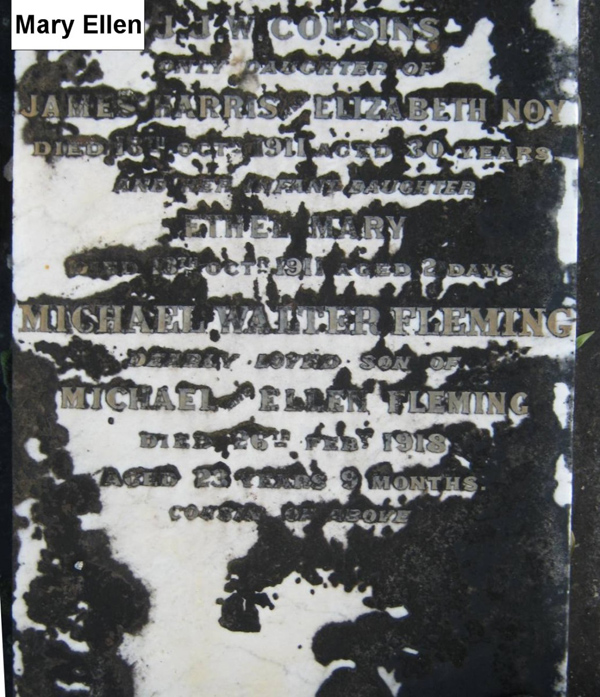 Mary Ellen
J. J. W. COUSINS
ONLY DAUGHTER OF
JAMES HARRIS & ELIZABETH NOY
DIED 15TH OCTR 1911 AGED 30 YEARS
AND HER INFANT DAUGHTER
ETHEL MARY
DIED OCTR 1911 AGED 2 DAYS
MICHAEL WALTER FLEMING
DEARLY LOVED SON OF
MICHAEL & ELLEN FLEMING
DIED 26TH FEBY 1918
AGED 23 YEARS 9 MONTHS.
COUSIN OF ABOVE